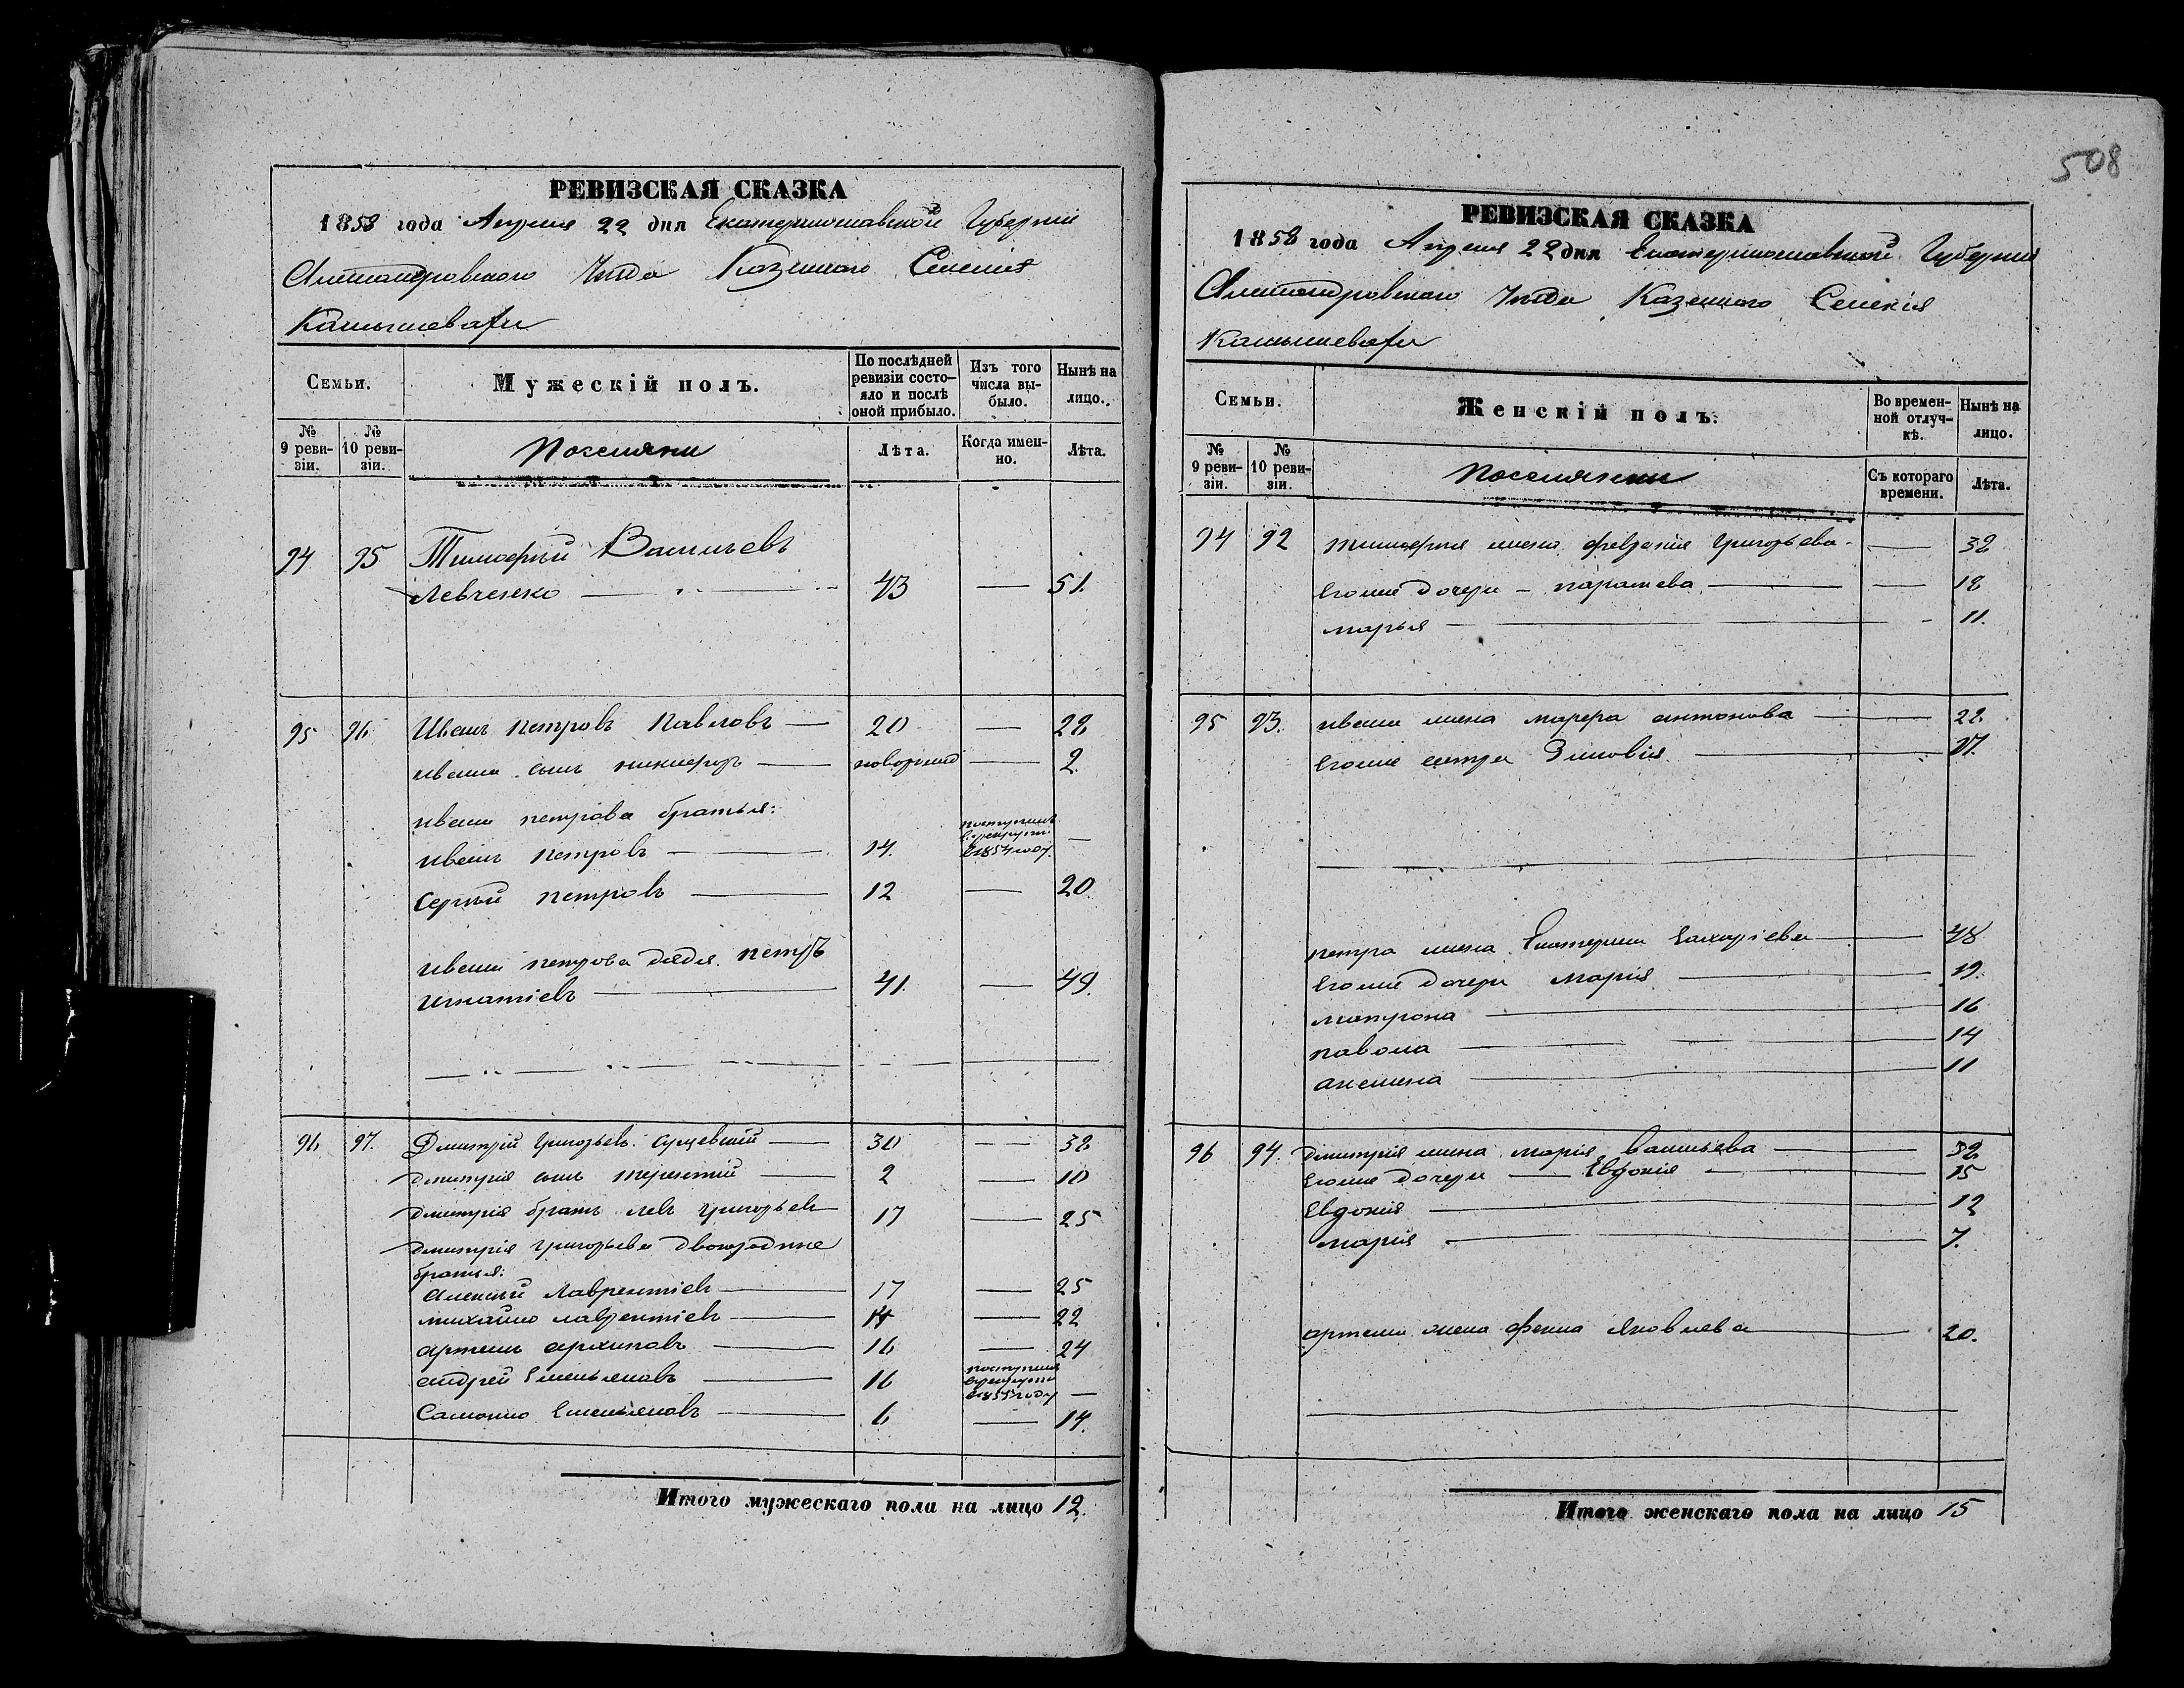 508
РЕВИЗСКАЯ СКАЗКА
1858 года Апреля 22 дня Екатеринославской Губерніи
Александровскаго Уѣзда Казеннаго Селенія
Камышевахи
Семьи.
Мужескій полъ.
По послѣдней ревизіи состо-яло и послѣ оной прибыло.
Изъ того числа вы-было.
Нынѣ на лицо.
№ 9 реви-зіи.
№ 10 реви-зіи.
Поселяни
Лѣта.
Когда имен-но.
Лѣта.
94 95 Тимофѣй Васильевъ
Левченко — 43 — 51.
95 96 Иванъ Петровъ Павловъ — 20 — 28
Ивана сынъ Никифоръ — новорожд — 2
Ивана Петрова братья:
Иванъ Петровъ — 14. поступилъ в рекруты в 1854 году. —
Сергѣй Петровъ — 12 — 20
Ивана Петрова дядя Петръ
Игнатіевъ — 41. — 49.
96 97. Дмитрій Григорьевъ Сущевскій — 30 — 38
Дмитрія сынъ Терентій — 2 — 10
Дмитрія братъ Левъ Григорьевъ — 17 — 25
Дмитрія Григорьева двоюродные
братья:
Алексѣй Лаврентіевъ — 17 — 25
Михайло Лаврентіевъ — 14 — 22
Артемъ Архиповъ — 16 — 24
Андрей Емельяновъ — 16 поступилъ в рекруты в 1855 году —
Самойло Емельяновъ — 6 — 14.
Итого мужескаго пола на лицо 12.
РЕВИЗСКАЯ СКАЗКА
1858 года Апреля 22 дня Екатеринославской Губерніи
Александровскаго Уѣзда Казеннаго Селенія
Камышевахи
Семьи.
Женскій полъ.
Во времен-ной отлуч-кѣ.
Нынѣ на лицо.
№ 9 реви-зіи.
№ 10 реви-зіи.
Поселянки
Съ котораго времени.
Лѣта.
94 92 Тимофея жена Февронія Григорьева — 32
Егоже дочери — Параскева — — 18
Марья — 11.
95 93. Ивана жена Марфа Антонова — 22
Егоже сестра Зиновія — 17.
Петра жена Екатерина Захаріева — 48
Егоже дочери Марія — 19.
Матрона — 16
Павола — 14
Аксенна — 11
96 94. Дмитрія жена Марія Васильева — 32
Егоже дочери — Евдокія — 15
Евдокія — 12
Марія — 7.
Артема жена Фекла Яковлева — 20.
Итого женскаго пола на лицо 15